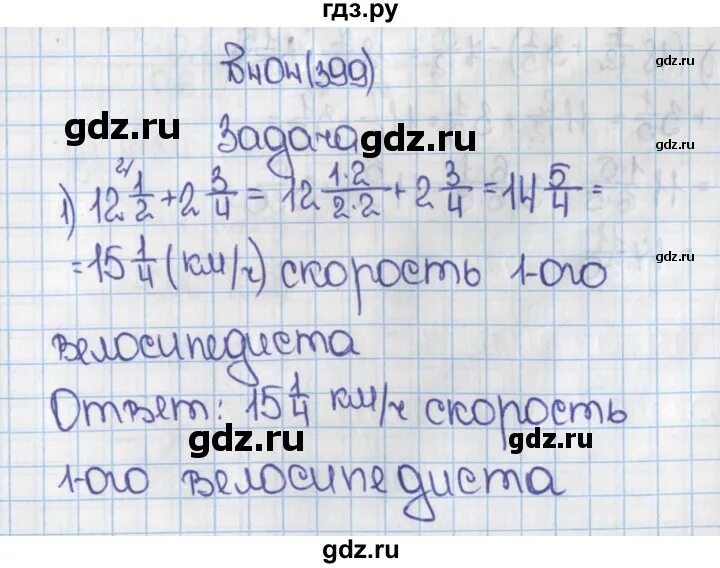 гдз.ру
gdz.ru
В404(399)
gdz.ru
Задача gdz.ru
gdz.ru
1) 12 ²⁄ 1/2 + 2 3/4 = 12 1·2/2·2 + 2 3/4 = 14 5/4 =
= 15 1/4 (км/ч) скорость 1-ого
gdz.ru
велосипедиста
gdz.ru
gdz.ru
Ответ: 15 1/4 км/ч скорость
gdz.ru
gdz.ru
1-ого велосипедиста
gdz.ru